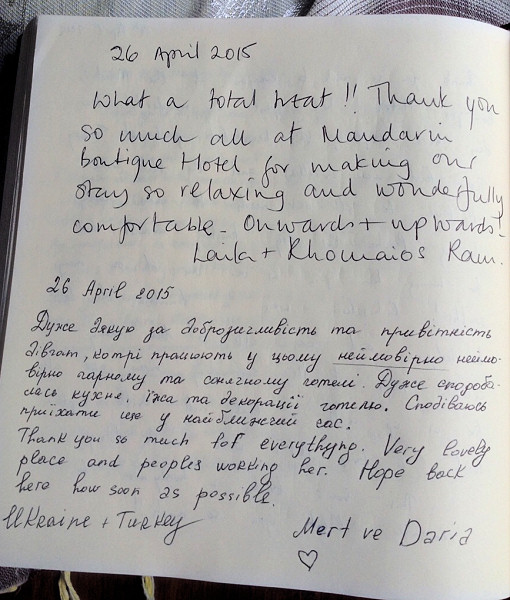 26 April 2015
What a total treat!! Thank you
so much all at Mandarin
Boutique Hotel for making our
stay so relaxing and wonderfully
comfortable. Onwards + upwards!
Laila + Rhomaios Ram.
26 April 2015
Дуже дякую за доброзичливість та привітність
дівчат, котрі працюють у цьому неймовірно неймо-
вірно гарному та сонячному готелі. Дуже сподоба-
лась кухня, їжа та декорації готелю. Сподіваюсь
приїхати ще у найближчий час.
Thank you so much for everythyng. Very lovely
place and peoples working her. Hope back
here how soon as possible.
Ukraine + Turkey
Mert ve Daria